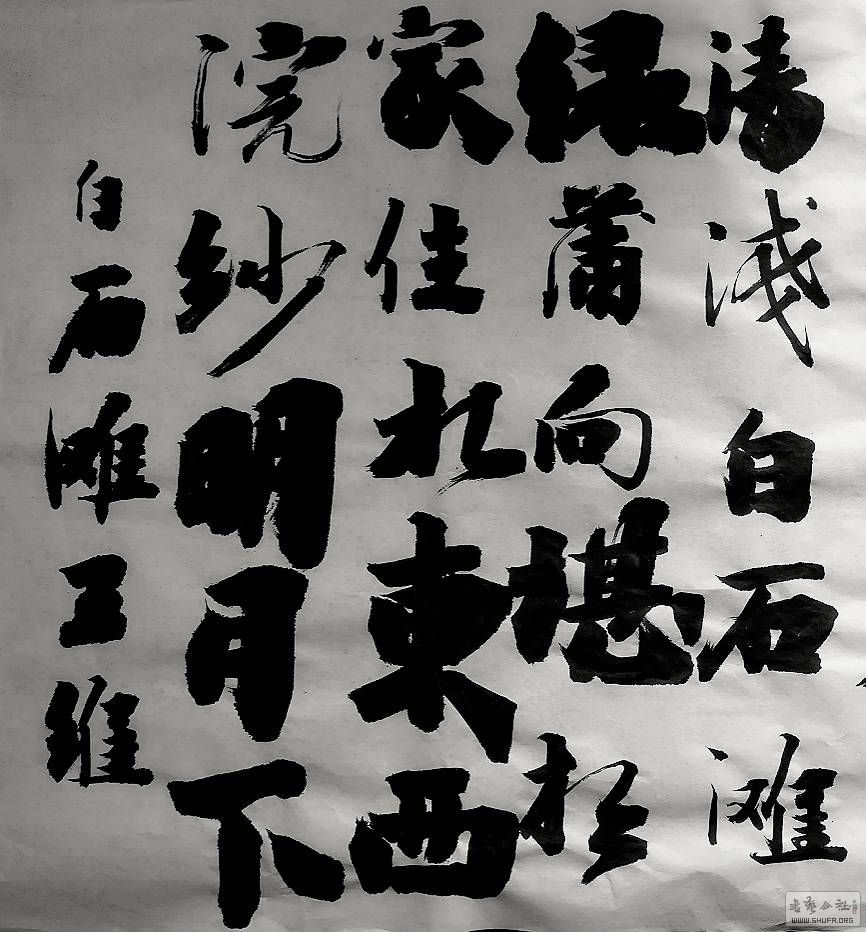 清浅白石滩
绿蒲向堪把
家住水東西
浣纱明月下
白石滩王维
书艺公社
WWW.SHUFA.ORG